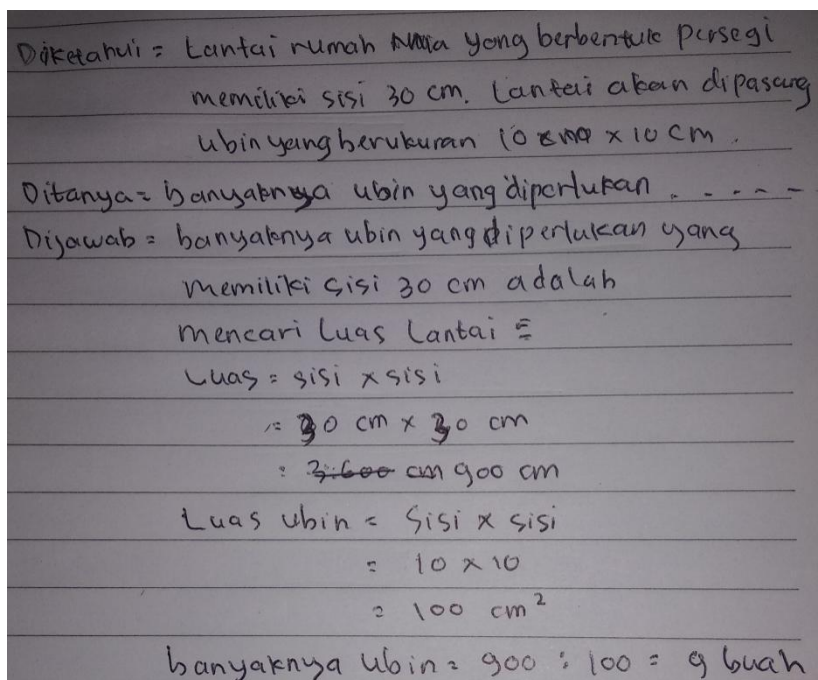 Diketahui = Lantai rumah Nana yang berbentuk persegi
memiliki sisi 30 cm. Lantai akan dipasang
ubin yang berukuran 10 x 10 cm.
Ditanya = banyaknya ubin yang diperlukan . . - - -
Dijawab = banyaknya ubin yang diperlukan yang
memiliki sisi 30 cm adalah
mencari luas lantai =
Luas = sisi x sisi
= 30 cm x 30 cm
= 3.600 cm 900 cm
Luas ubin = sisi x sisi
= 10 x 10
= 100 cm²
banyaknya ubin = 900 : 100 = 9 buah